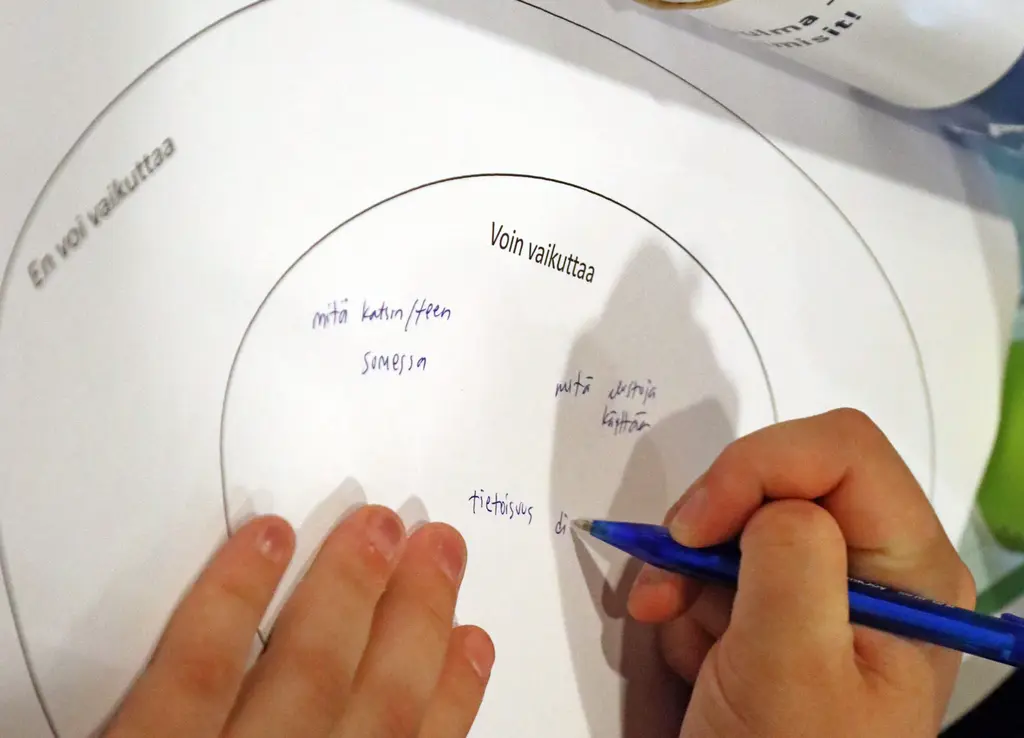 misit!
En voi vaikuttaa
Voin vaikuttaa
mitä katsin/teen
somessa
mitä
käyttän
tietoisuus di